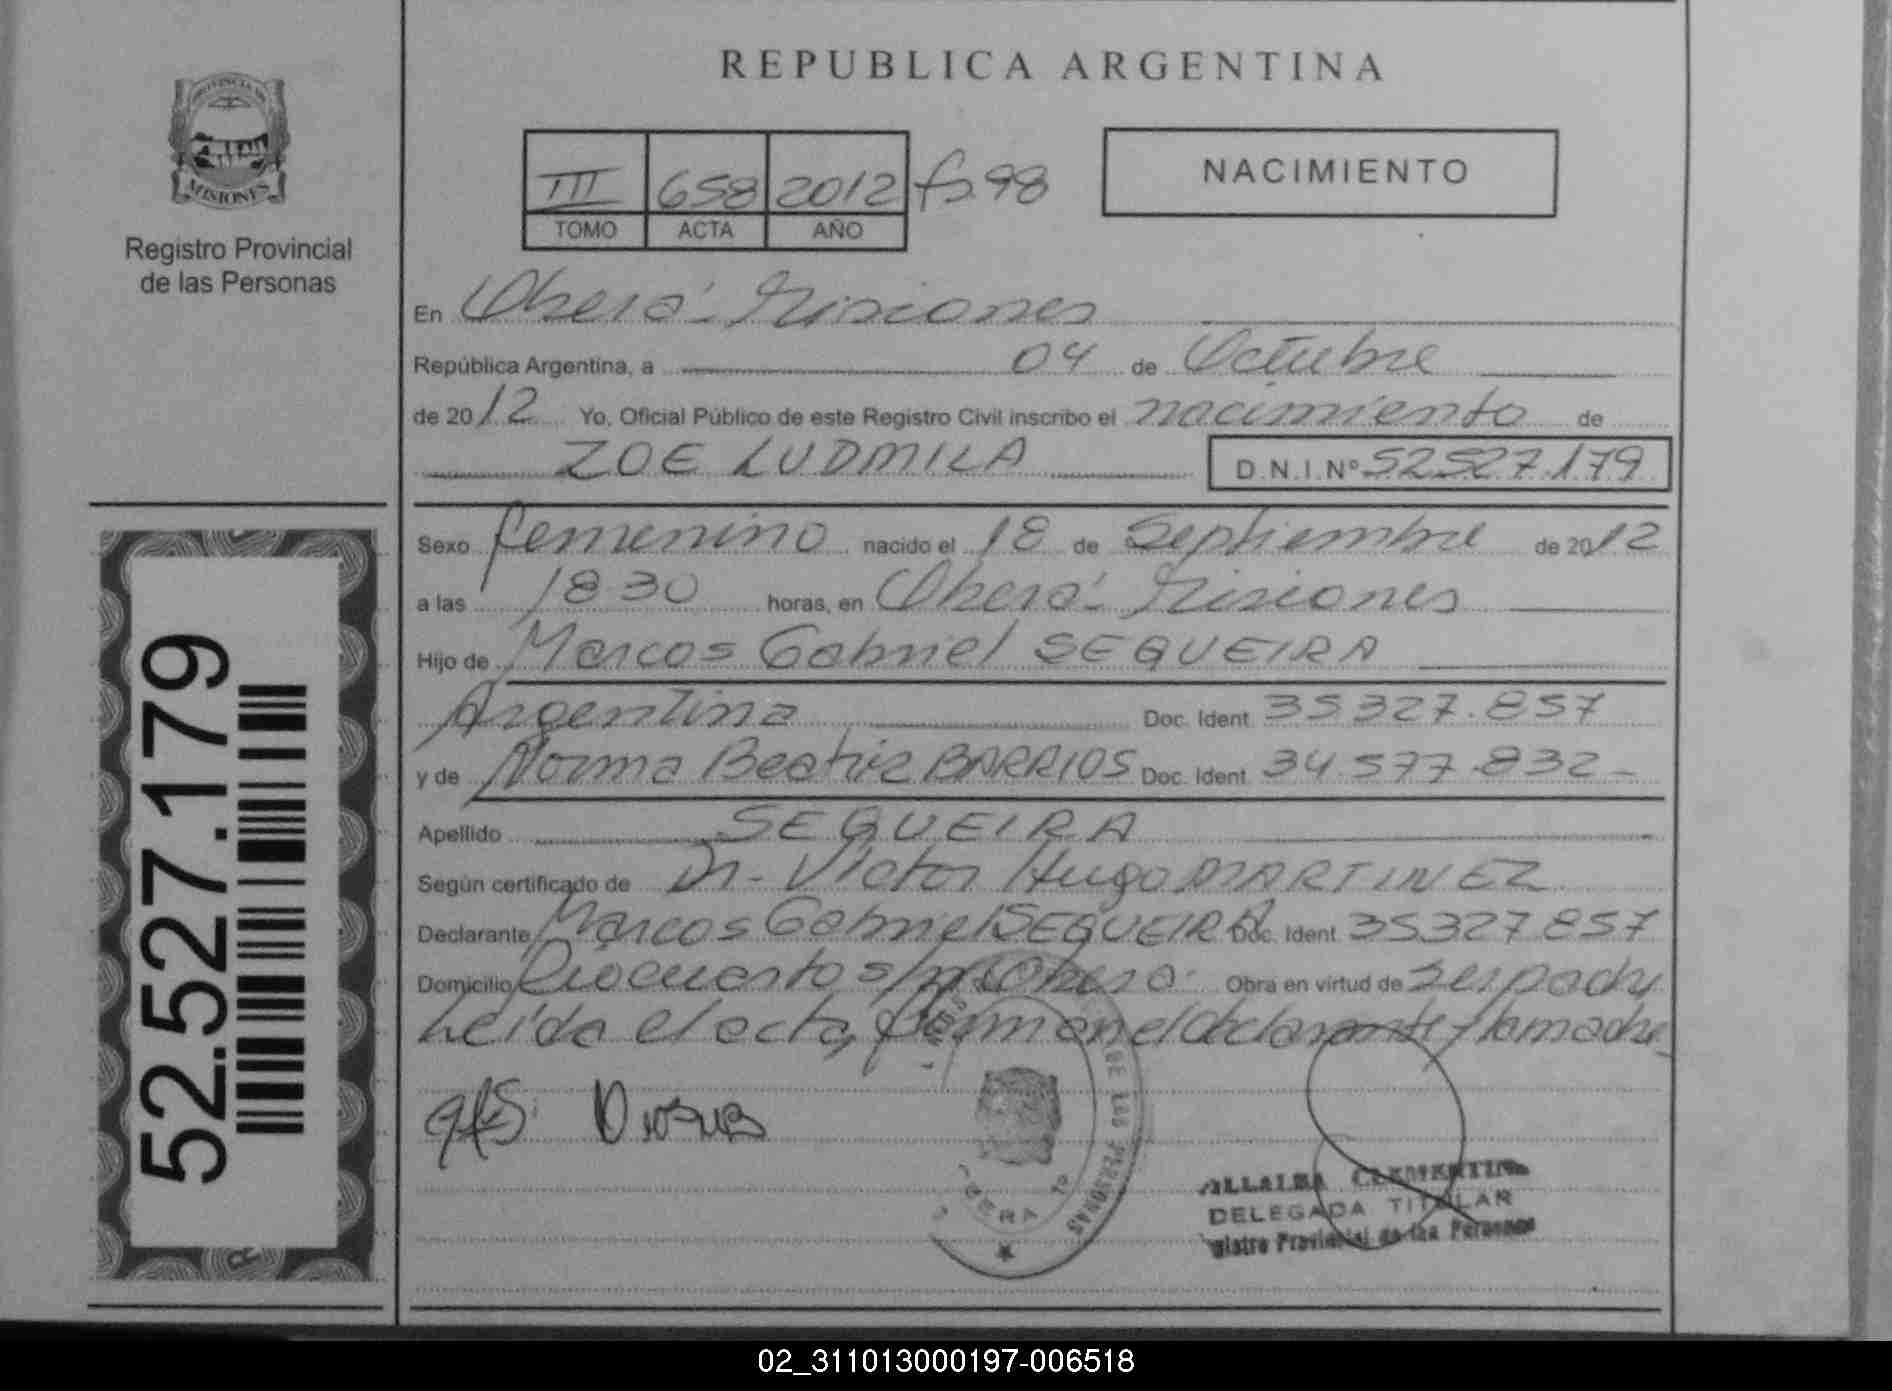 PROVINCIA DE
MISIONES
Registro Provincial
de las Personas
52.527.179
REPUBLICA ARGENTINA
III 658 2012 fs. 98
TOMO ACTA AÑO
NACIMIENTO
En Oberá - Misiones
República Argentina, a 04 de Octubre
de 2012 Yo, Oficial Público de este Registro Civil inscribo el nacimiento de
ZOE LUDMILA D.N.I.Nº 52527.179
Sexo femenino nacido el 18 de Septiembre de 2012
a las 18 30 horas, en Oberá - Misiones
Hijo de Marcos Gabriel SEQUEIRA
Argentina Doc. Ident 35327.857
y de Norma Beatriz BARRIOS Doc. Ident. 34.577.832-
Apellido SEQUEIRA
Según certificado de Dr. Victor Hugo MARTINEZ
Declarante Marcos Gabriel SEQUEIRA Doc. Ident. 35327857
Domicilio s/n Oberá. Obra en virtud de ser padre
Leída el acta, firman el declarante y la madre
DE LAS PERSONAS
OBERA
CLEMENTINA
DELEGADA TITULAR
Provincial de las Personas
02_311013000197-006518